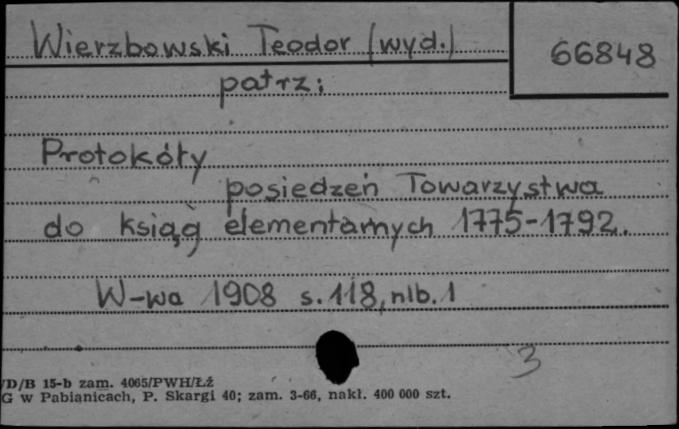 Wierzbowski Teodor (wyd.)
66848
patrz:
Protokóły
posiedzeń Towarzystwa
do ksiąg elementarnych 1775-1792.
W-wa 1908 s. 118, nlb. 1
3
/D/B 15-b zam. 4065/PWH/Łź
G w Pabianicach, P. Skargi 40; zam. 3-66, nakł. 400 000 szt.